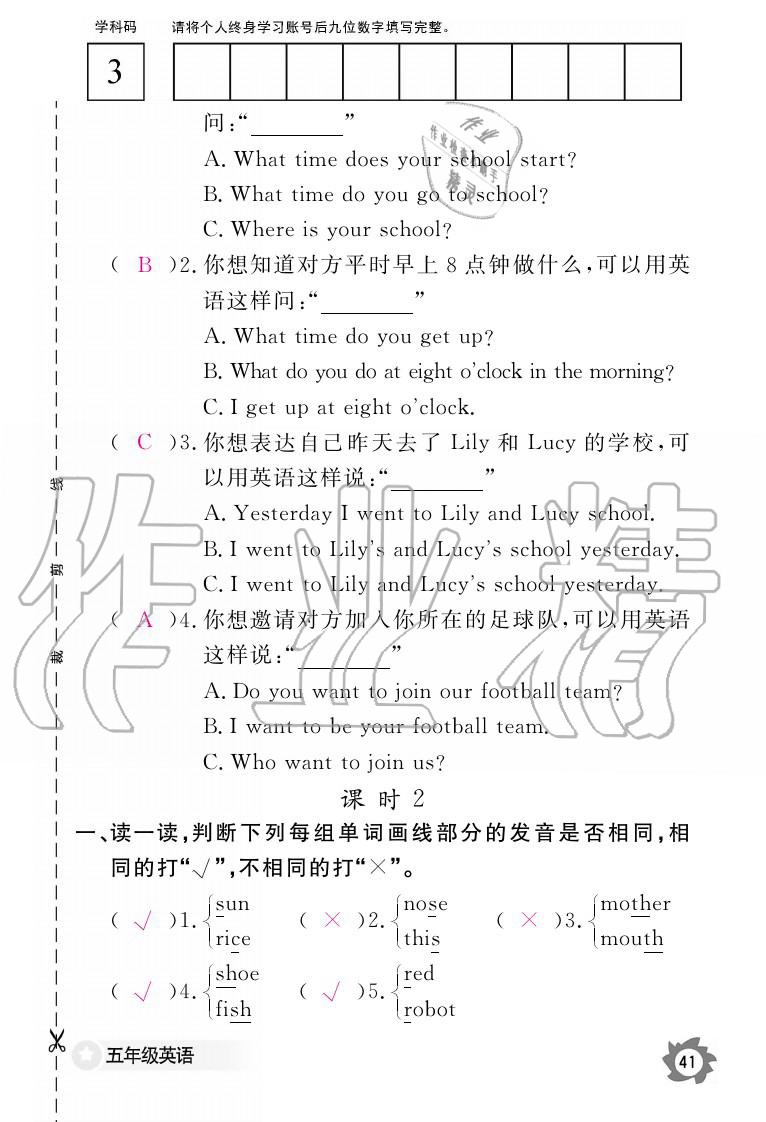 学科码 请将个人终身学习账号后九位数字填写完整。
3
问:“________”
A. What time does your school start?
B. What time do you go to school?
C. Where is your school?
( B )2. 你想知道对方平时早上 8 点钟做什么,可以用英
语这样问:“________”
A. What time do you get up?
B. What do you do at eight o'clock in the morning?
C. I get up at eight o'clock.
( C )3. 你想表达自己昨天去了 Lily 和 Lucy 的学校,可
以用英语这样说:“________”
A. Yesterday I went to Lily and Lucy school.
B. I went to Lily's and Lucy's school yesterday.
C. I went to Lily and Lucy's school yesterday.
( A )4. 你想邀请对方加入你所在的足球队,可以用英语
这样说:“________”
A. Do you want to join our football team?
B. I want to be your football team.
C. Who want to join us?
课时2
一、读一读,判断下列每组单词画线部分的发音是否相同,相
同的打“√”,不相同的打“×”。
( √ )1. sun rice ( × )2. nose this ( × )3. mother mouth
( √ )4. shoe fish ( √ )5. red robot
五年级英语
41
线
剪
裁
作业精
作业
作业检查小助手
精灵